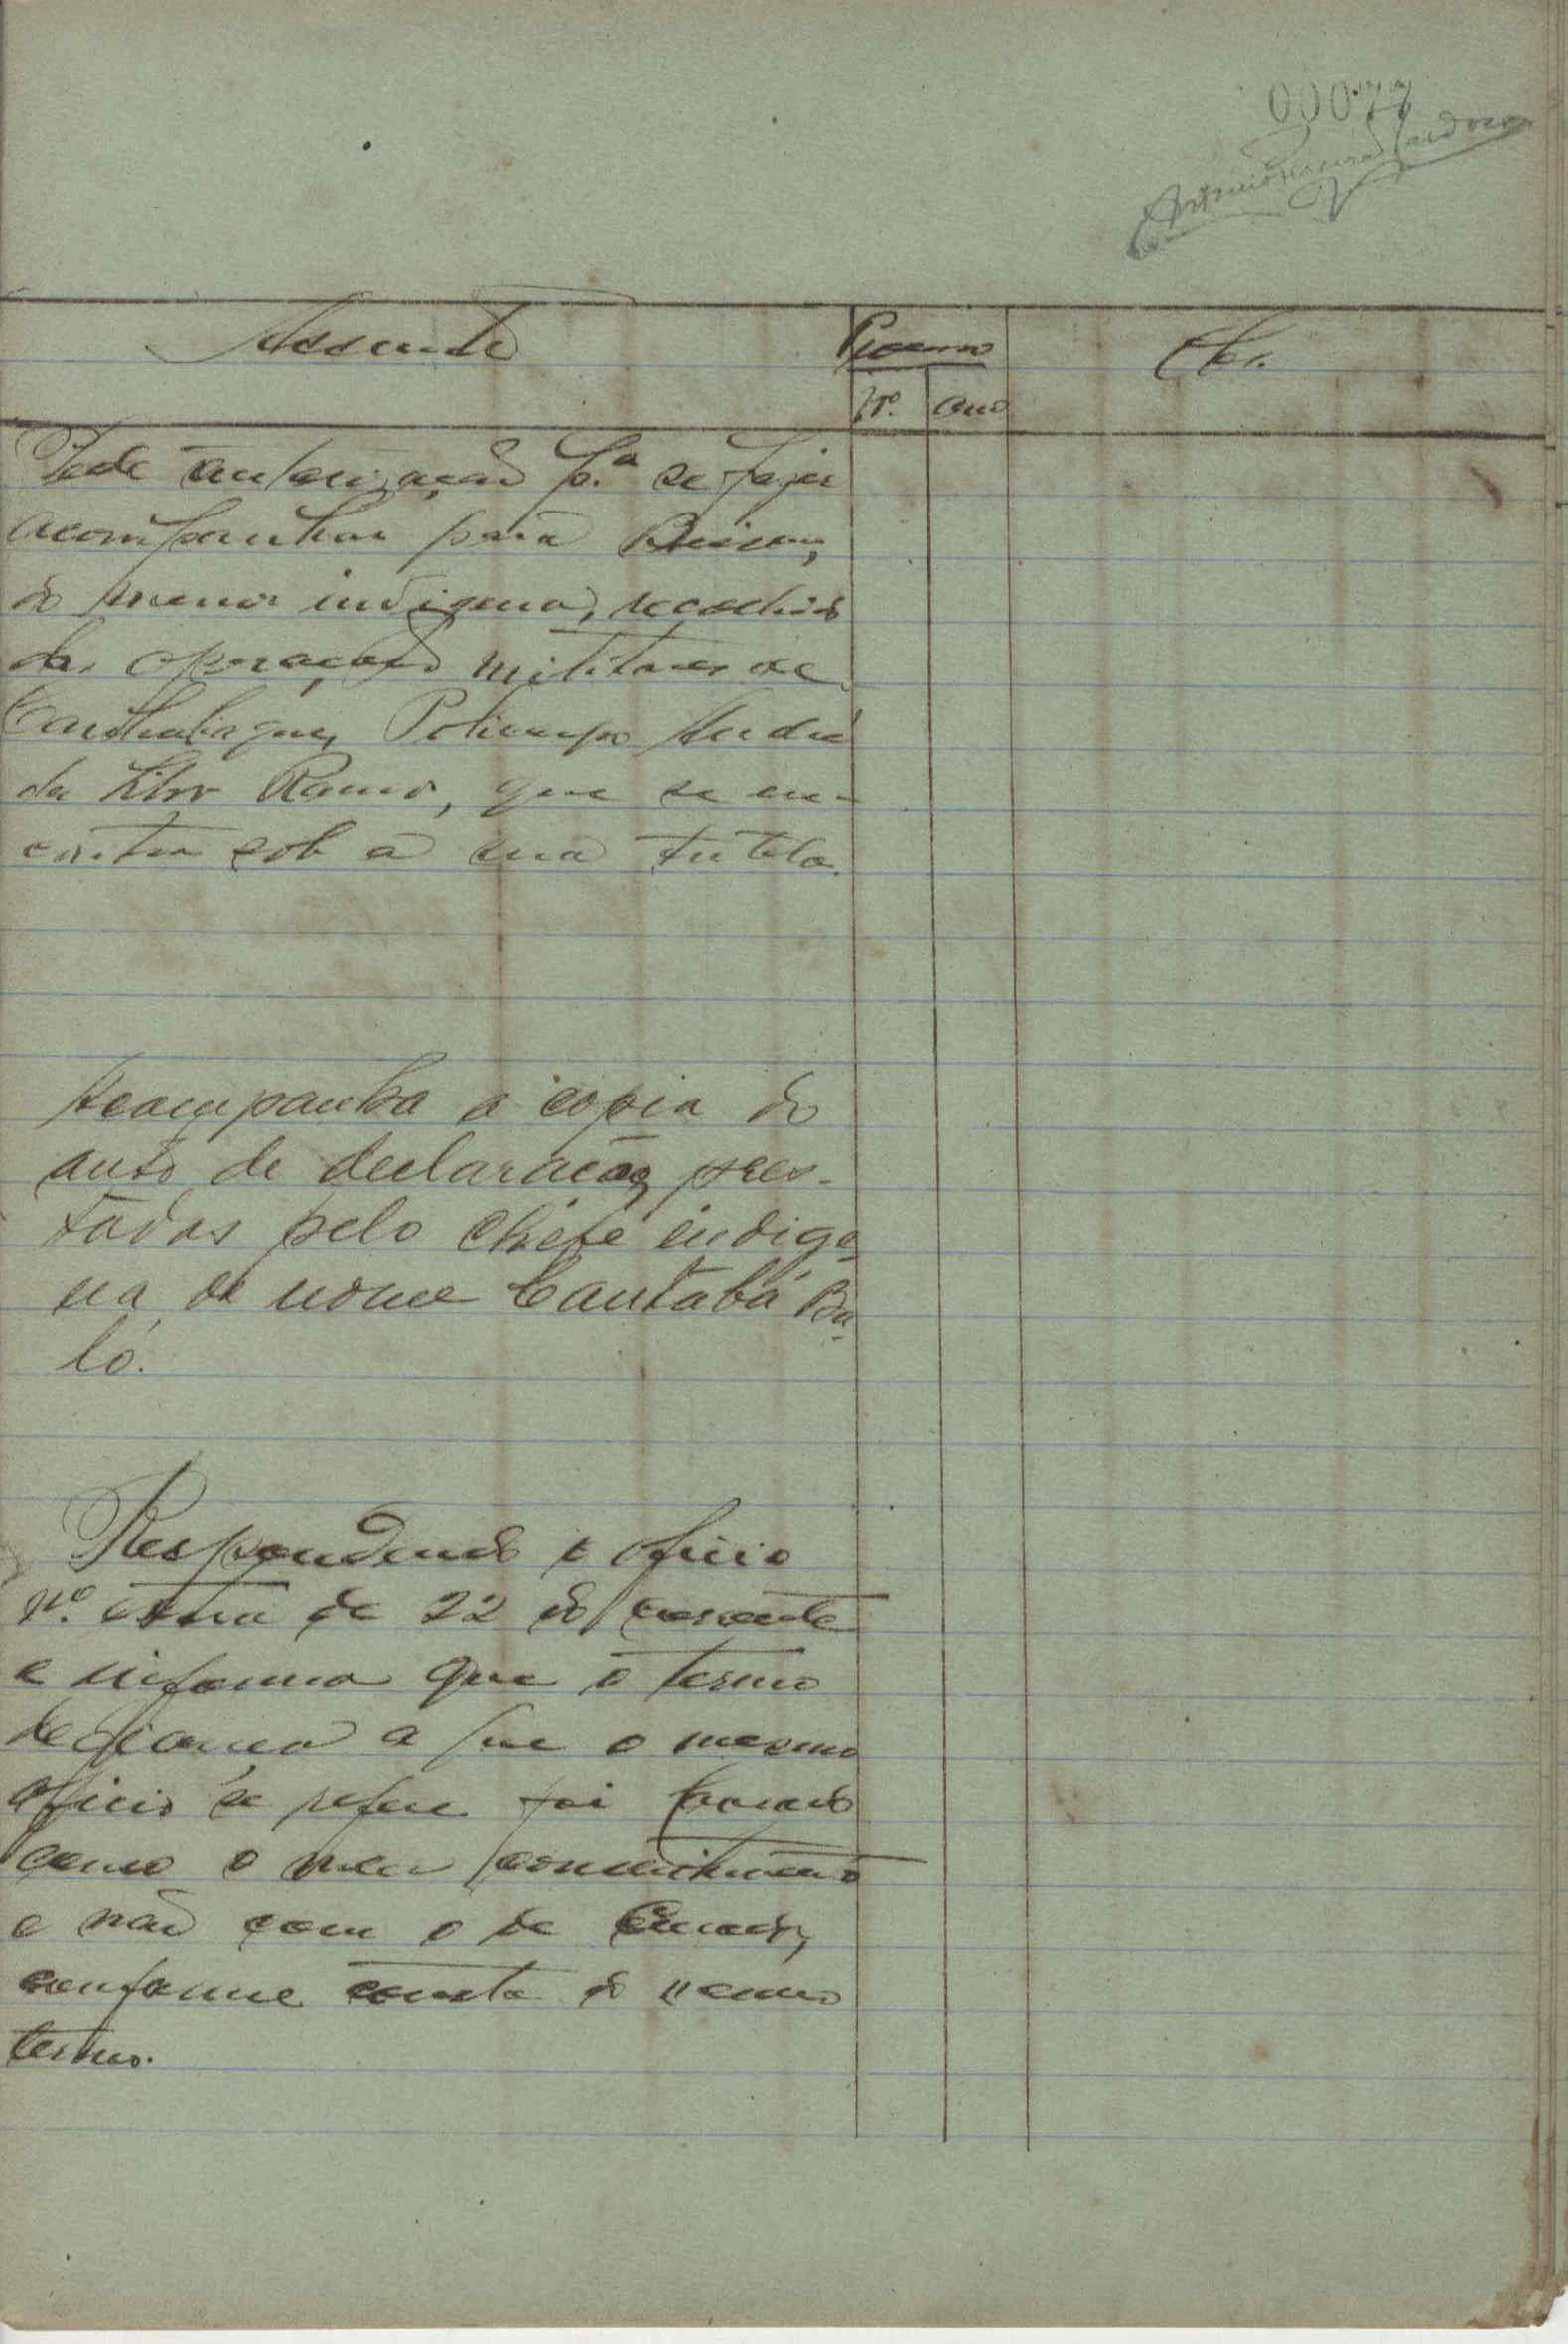 00077
Assunto
Processo
Obs.
Nº. Ano
Pede autorização p.ª se fazer
acompanhar para Bissau,
do menor indigena, recolhido
das operações militares de
Canhabaque, Policarpo André
da Silva Ramos, que se en-
contra sob a sua tutela.
Acompanha a copia do
auto de declarações pres-
tadas pelo chefe indige-
na de nome Cantabá Ba-
ló.
Respondendo o oficio
nº. extra de 22 do corrente
e informa que o termo
de fiança a que o mesmo
oficio se refere foi lavrado
como o meu conhecimento
e não com o de
conforme consta do mesmo
termo.